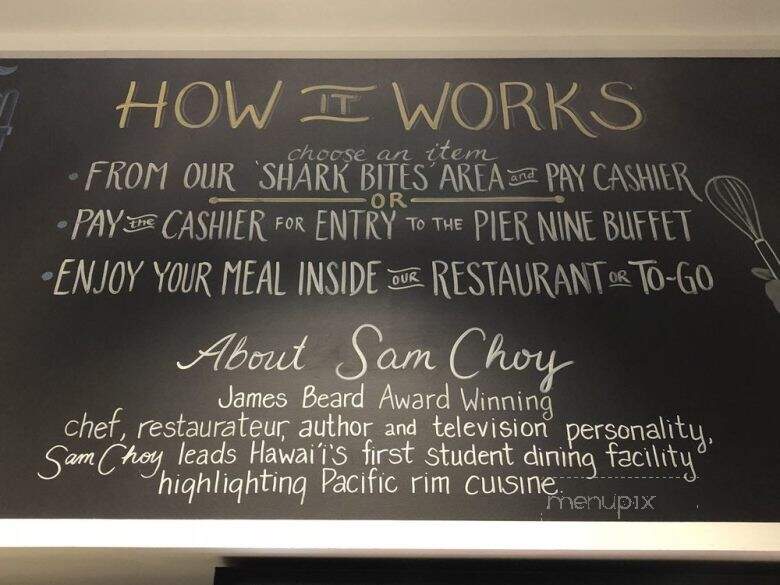 HOW IT WORKS
choose an item
• FROM OUR 'SHARK BITES' AREA and PAY CASHIER
OR
• PAY the CASHIER FOR ENTRY TO THE PIER NINE BUFFET
• ENJOY YOUR MEAL INSIDE OUR RESTAURANT OR TO-GO
About Sam Choy
James Beard Award Winning
chef, restaurateur, author and television personality,
Sam Choy leads Hawai'i's first student dining facility
highlighting Pacific rim cuisine.
menupix